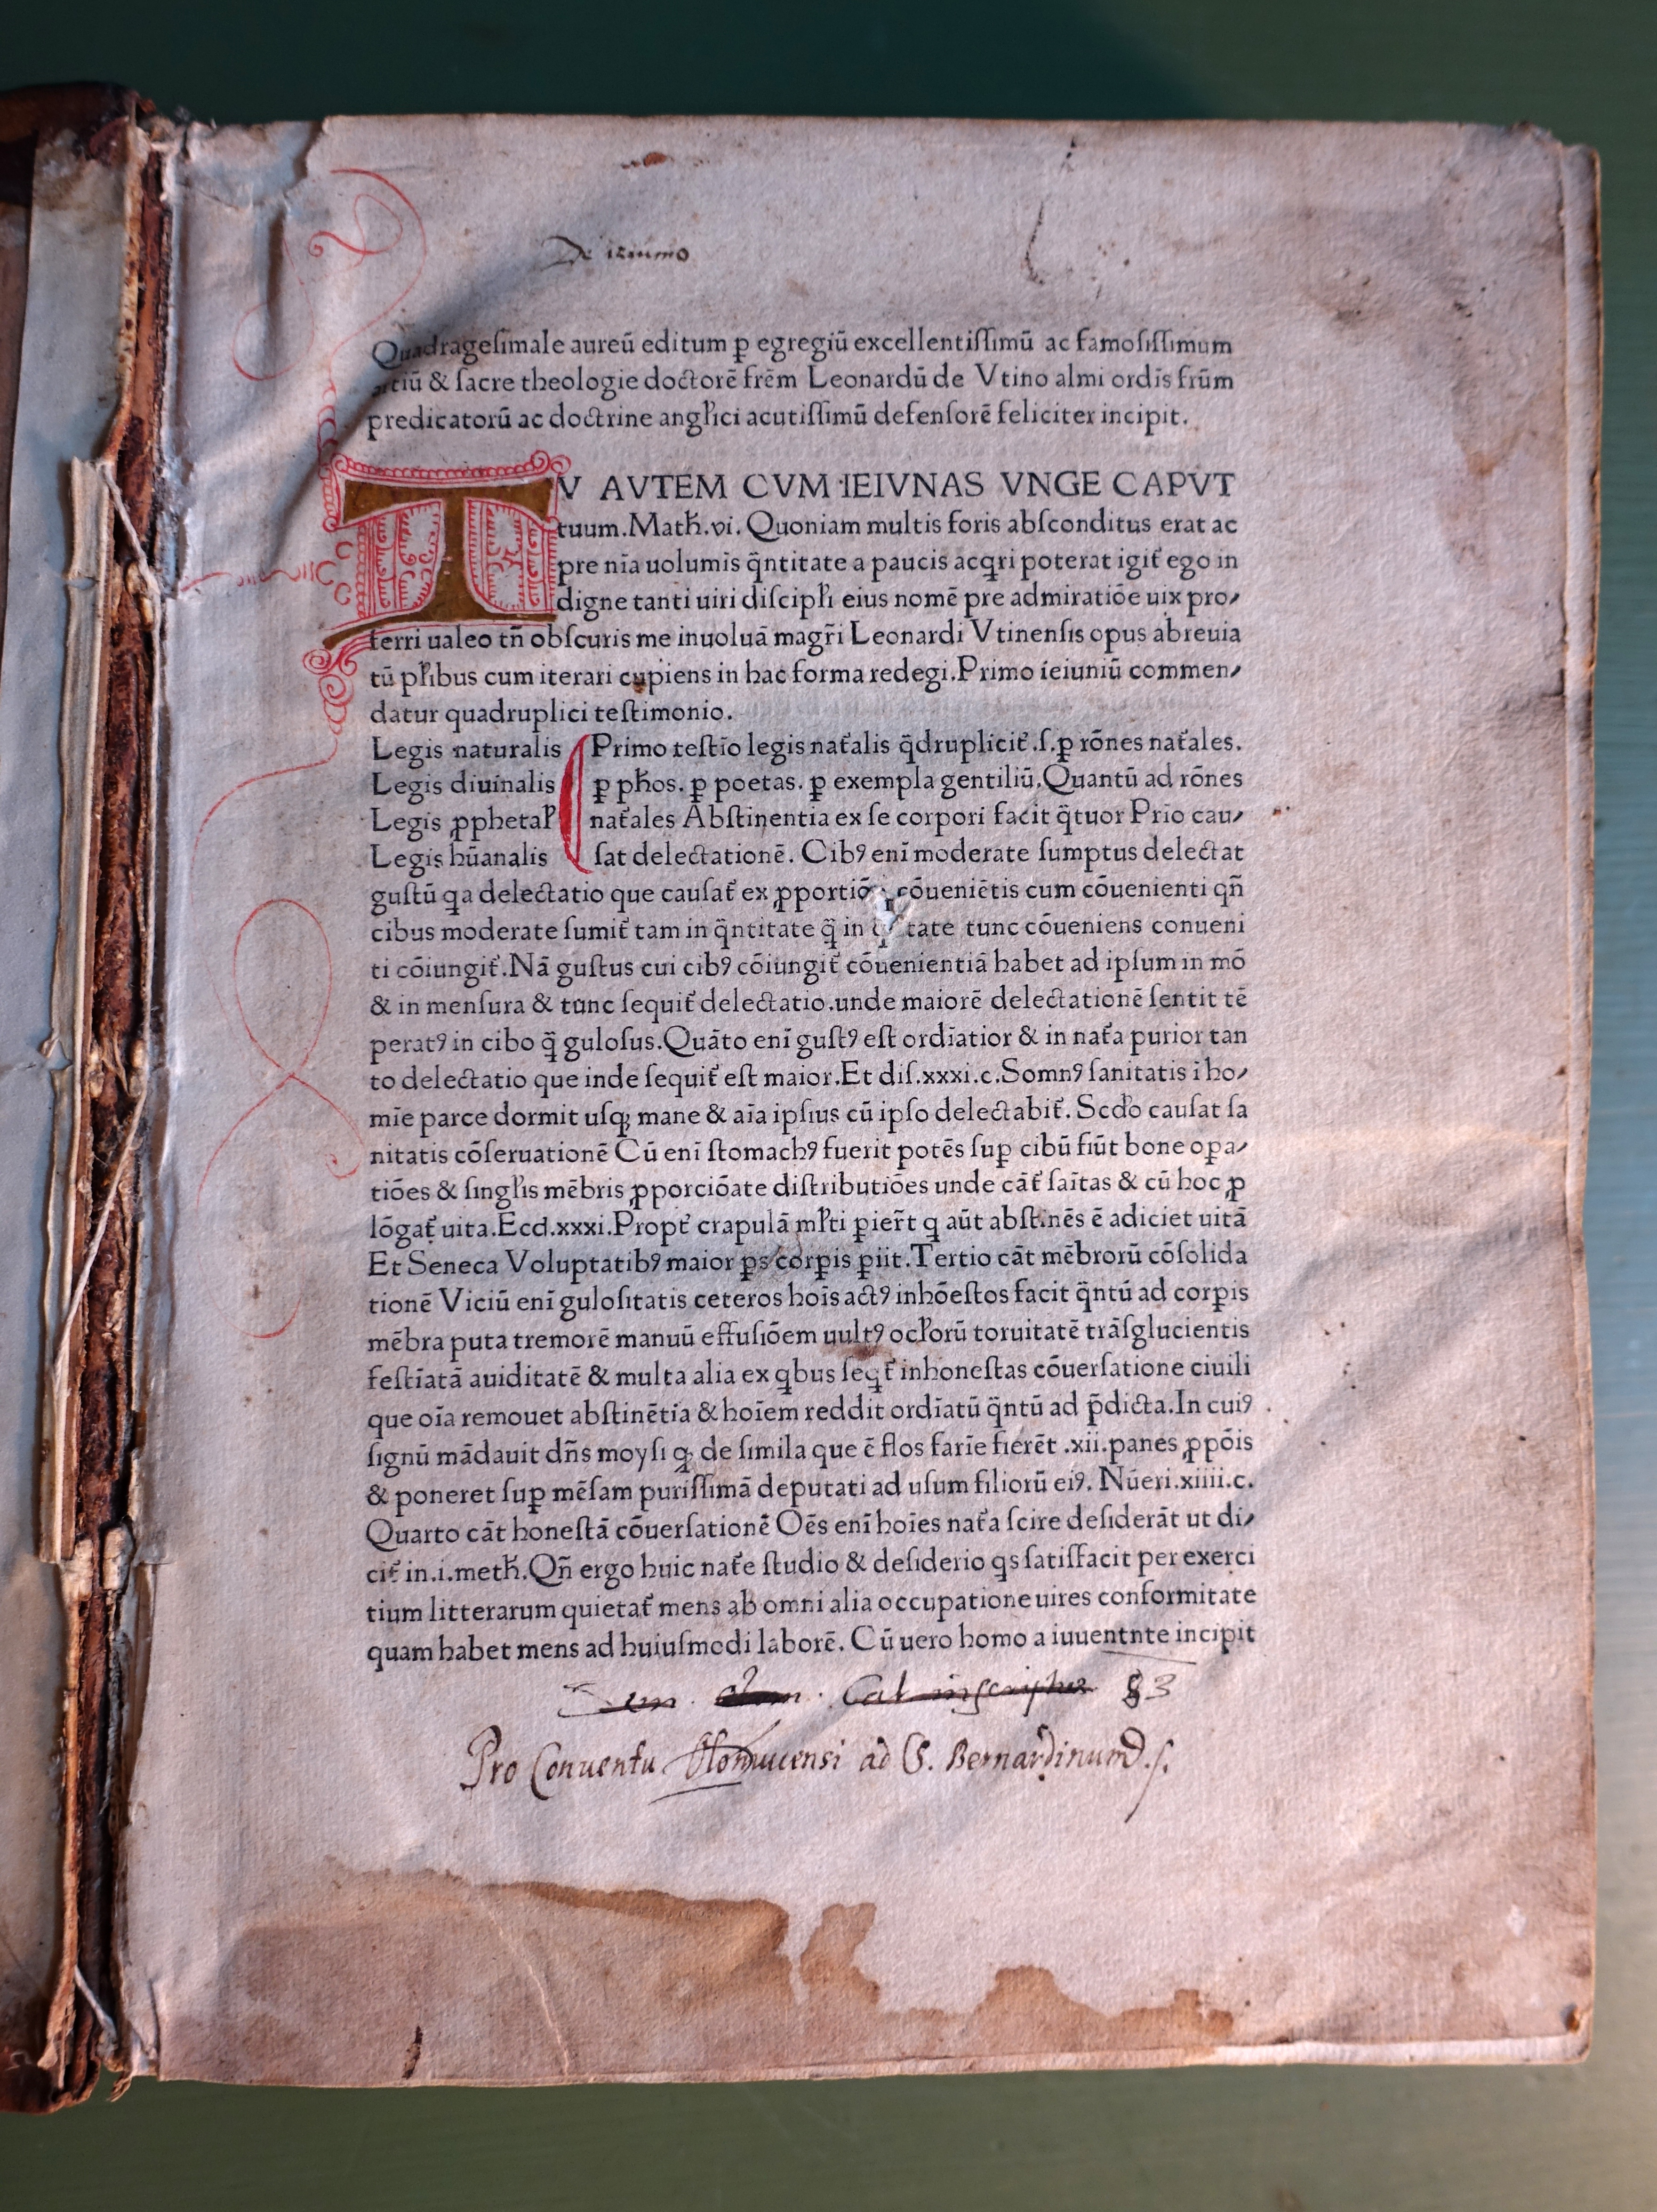 De ieiunio
Quadragesimale aureū editum ꝑ egregiū excellentissimū ac famosissimum
artiū & sacre theologie doctorē frēm Leonardū de Vtino almi ordis frūm
predicatorū ac doctrine angl̓ici acutissimū defensorē feliciter incipit.
TV AVTEM CVM IEIVNAS VNGE CAPVT
tuum. Matħ. vi. Quoniam multis foris absconditus erat ac
pre nīa uolumīs q̄ntitate a paucis acqri poterat igit̄ ego in
digne tanti uiri discipl̓i eius nomē pre admiratiōe uix pro⸗
ferri ualeo tn̄ obscuris me inuoluā magr̄i Leonardi Vtinensis opus abreuia
tū pl̓ibus cum iterari cupiens in hac forma redegi. Primo ieiuniū commen⸗
datur quadruplici testimonio.
Legis naturalis Primo testīo legis nat̄alis q̄druplicit̄. s. ꝑ rōnes nat̄ales.
Legis diuinalis ꝑ pħos. ꝑ poetas. ꝑ exempla gentiliū. Quantū ad rōnes
Legis ꝓphetal̓ nat̄ales Abstinentia ex se corpori facit q̄tuor Prīo cau⸗
Legis hūanalis sat delectationē. Cibꝰ enī moderate sumptus delectat
gustū qa delectatio que causat̄ ex ꝓportiō cōueniētis cum cōuenienti qn̄
cibus moderate sumit̄ tam in q̄ntitate q̄ in tate tunc cōueniens conueni
ti cōiungit̄. Nā gustus cui cibꝰ cōiungit̄ cōuenientiā habet ad ipsum in mō
& in mensura & tunc sequit̄ delectatio. unde maiorē delectationē sentit tē
peratꝰ in cibo q̄ gulosus. Quāto enī gustꝰ est ordīatior & in nat̄a purior tan
to delectatio que inde sequit̄ est maior. Et dis. xxxi. c. Somnꝰ sanitatis ī ho⸗
mīe parce dormit usqꝫ mane & aīa ipsius cū ipso delectabit̄. Scd̓o causat sa
nitatis cōseruationē Cū enī stomachꝰ fuerit potēs suꝑ cibū fiūt bone oꝑa⸗
tiōes & singl̓is mēbris ꝓporciōate distributiōes unde cāt̄ saītas & cū hoc ꝓ
lōgat̄ uita. Ecd. xxxi. Propt̄ crapulā ml̓ti ꝑier̄t q aūt abstinēs ē adiciet uitā
Et Seneca Voluptatibꝰ maior ꝑs corꝑis ꝑiit. Tertio cāt mēbrorū cōsolida
tionē Viciū enī gulositatis ceteros hoīs actꝰ inhōestos facit q̄ntū ad corꝑis
mēbra puta tremorē manuū effusiōem uultꝰ ocl̓orū toruitatē trāsglucientis
festīatā auiditatē & multa alia ex qbus seqt̄ inhonestas cōuersatione ciuili
que oīa remouet abstinētia & hoīem reddit ordīatū q̄ntū ad p̄dicta. In cuiꝰ
signū mādauit dn̄s moysi qꝫ de simila que ē flos farīe fierēt. xii. panes ꝓpōis
& poneret suꝑ mēsam purissimā deputati ad usum filiorū eiꝰ. Nūeri. xiiii. c.
Quarto cāt honestā cōuersationē Oēs enī hoīes nat̄a scire desiderāt ut di⸗
cit̄ in. i. metħ. Qn̄ ergo huic nat̄e studio & desiderio qs satisfacit per exerci
tium litterarum quietat̄ mens ab omni alia occupatione uires conformitate
quam habet mens ad huiusmodi laborē. Cū uero homo a iuuentnte incipit
Cat inscriptus 83
Pro Conuentu Olomucensi ad S. Bernardinum.